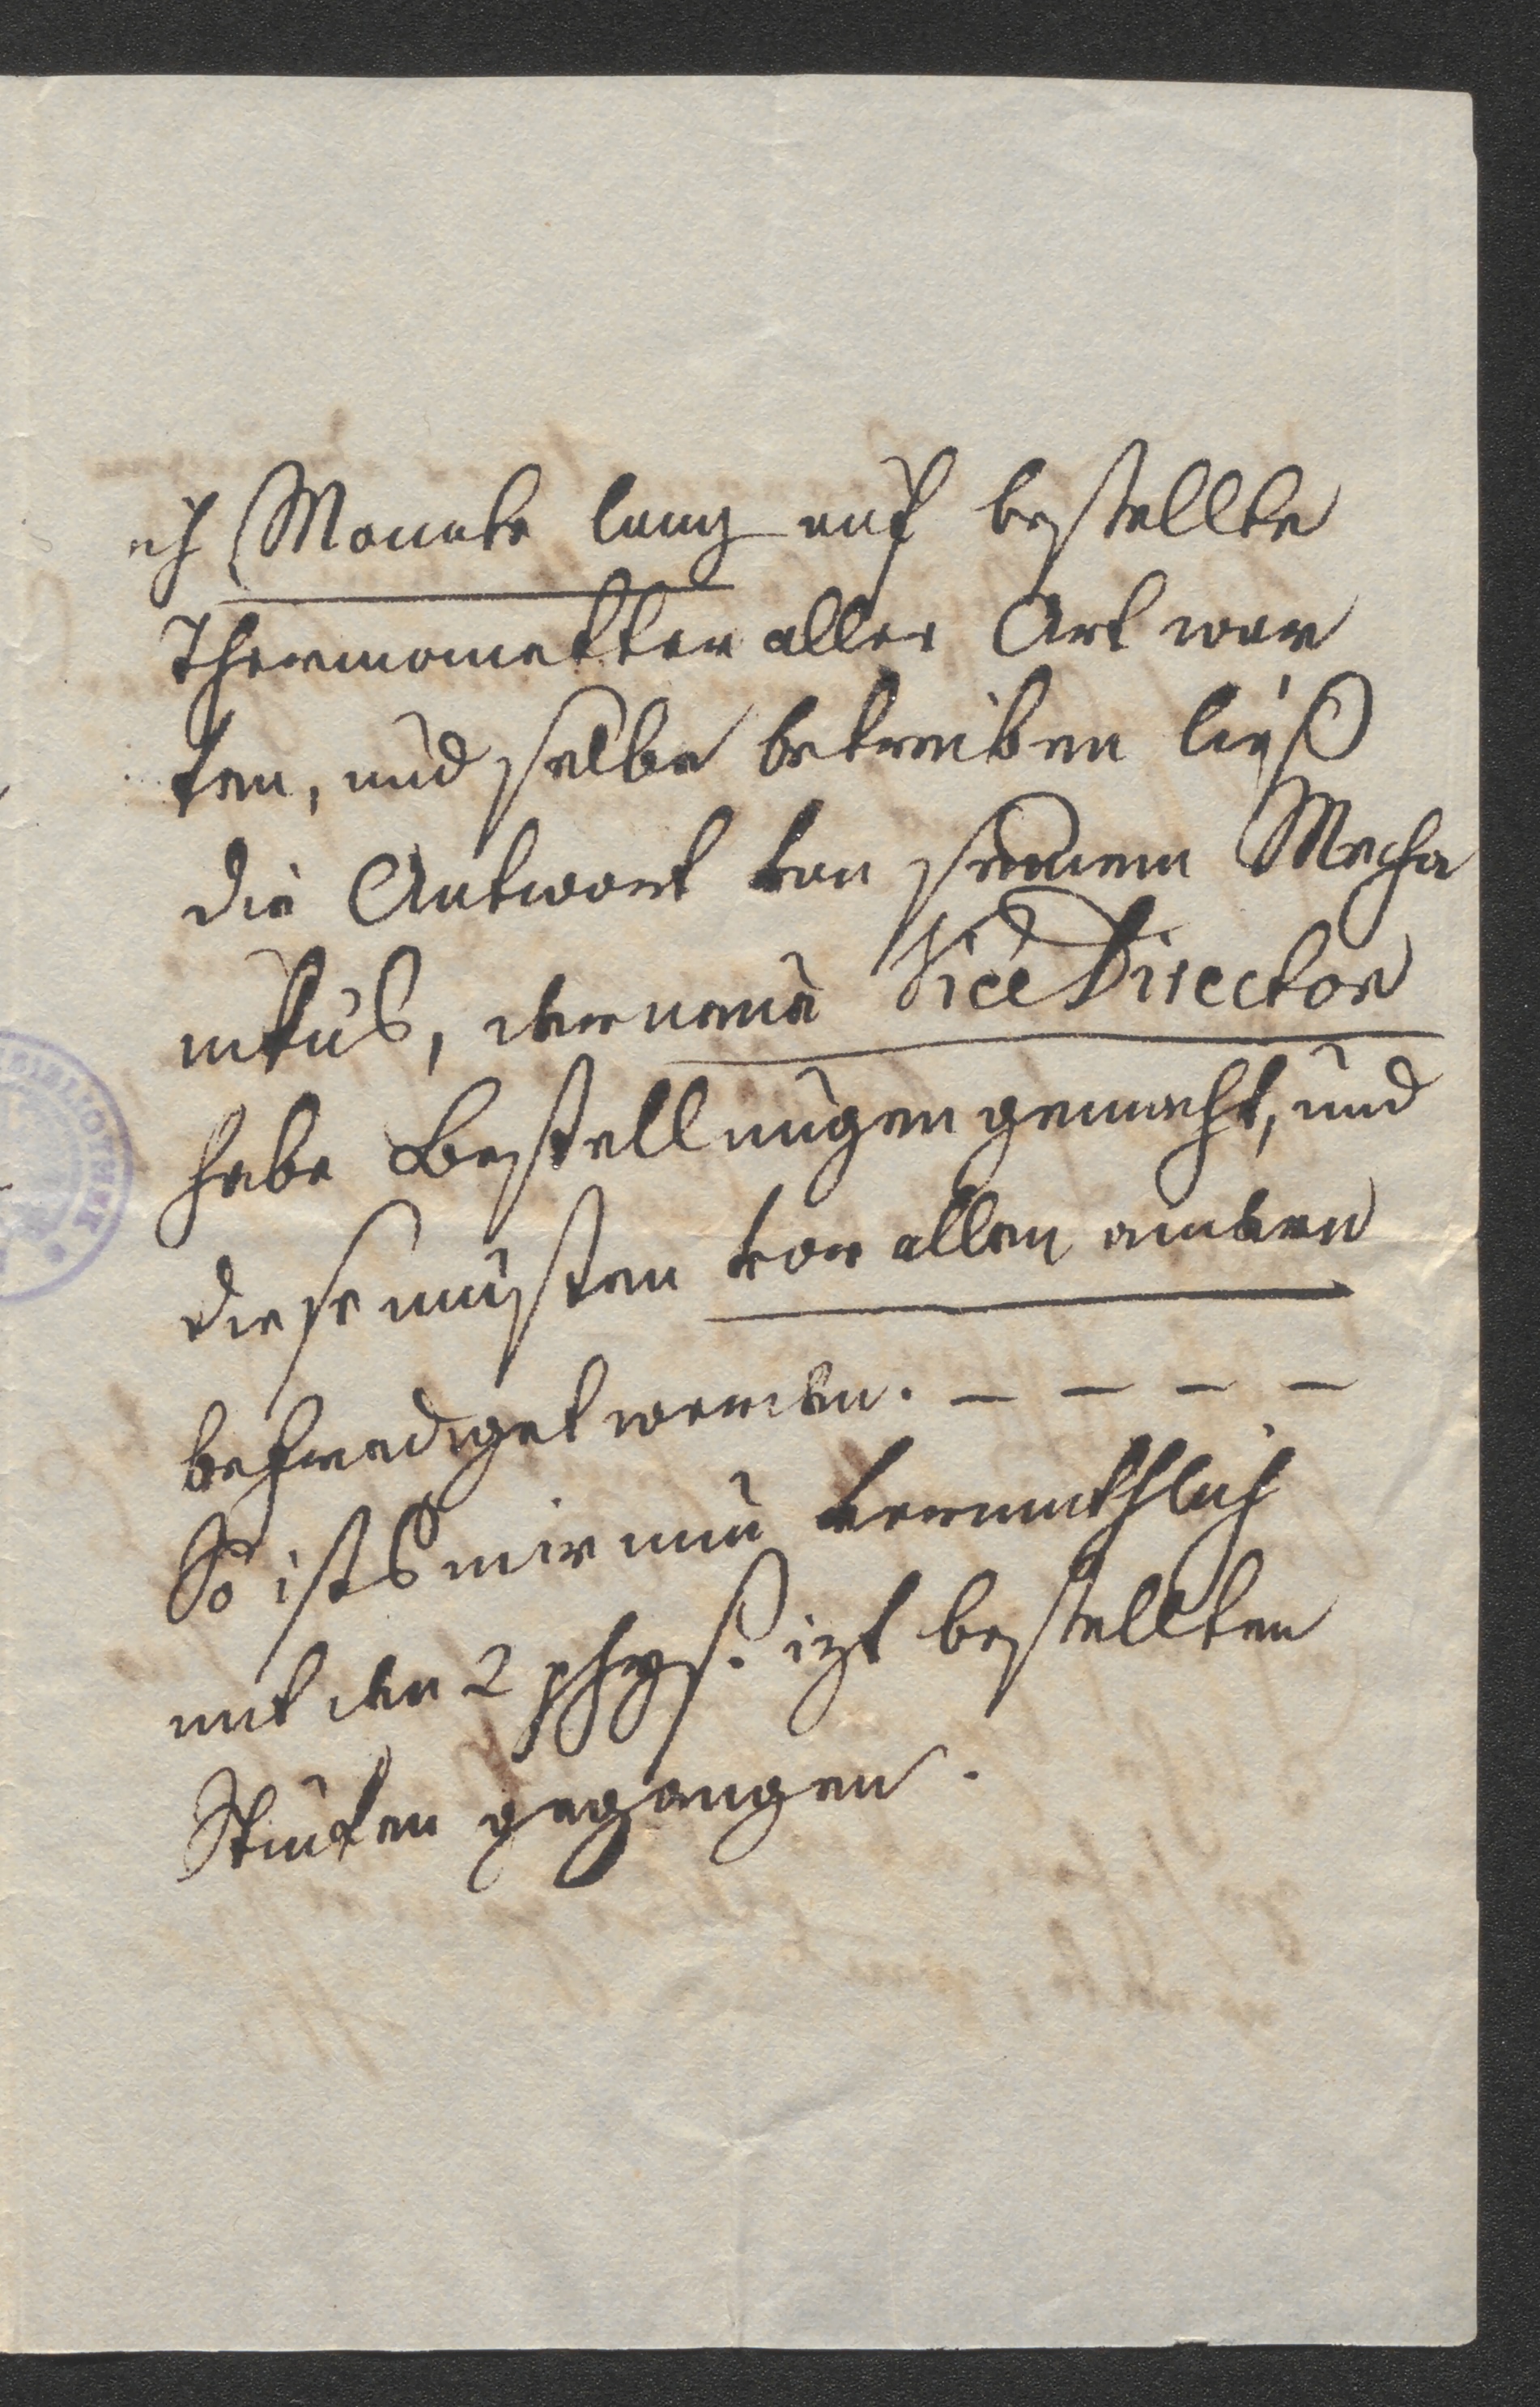 ich Monate lang auf bestellte
Thermometter aller Art war
ten, und selbe betreiben ließ
die Antwort von seinem Mecha
nikus, der neue Vice Director
habe Bestellungen gemacht, und
diese müsten vor allen andern
befriediget werden. – – – –
So ists mir nun vermuthlich
mit den 2 phys. izt bestellten
Stüken gegangen.